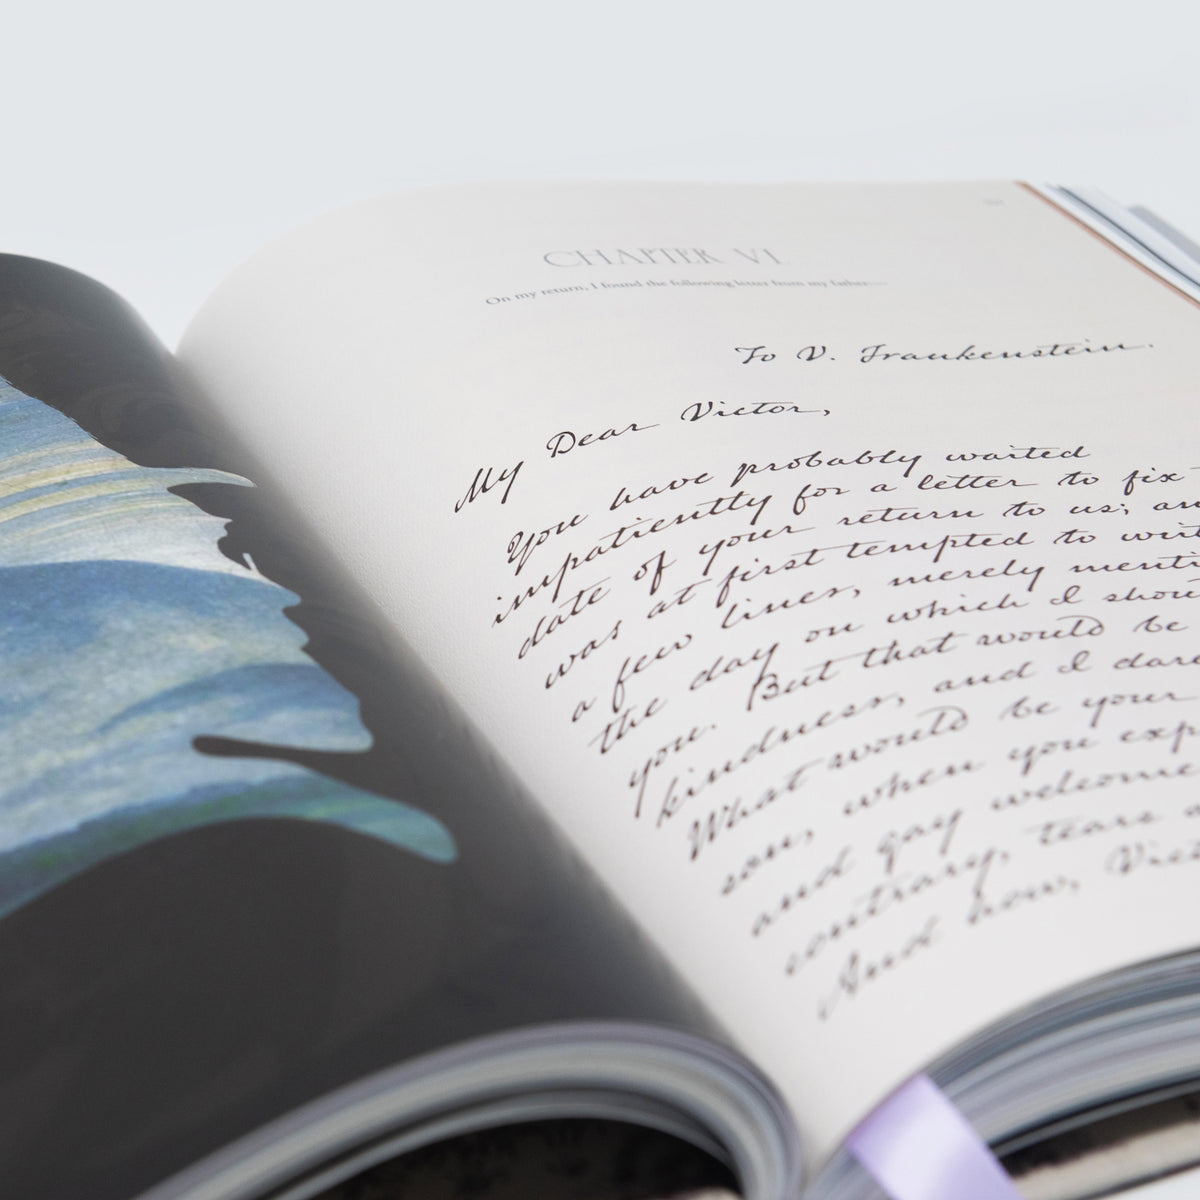 CHAPTER VI.
On my return, I found the following letter from my father—
To V. Frankenstein.
My Dear Victor,
You have probably waited
impatiently for a letter to fix
date of your return to us; an
was at first tempted to writ
a few lines, merely menti
the day on which I shou
you. But that would be
kindness, and I dar
What would be your
son, when you exp
and gay welcome
contrary, tears
And now, Vict